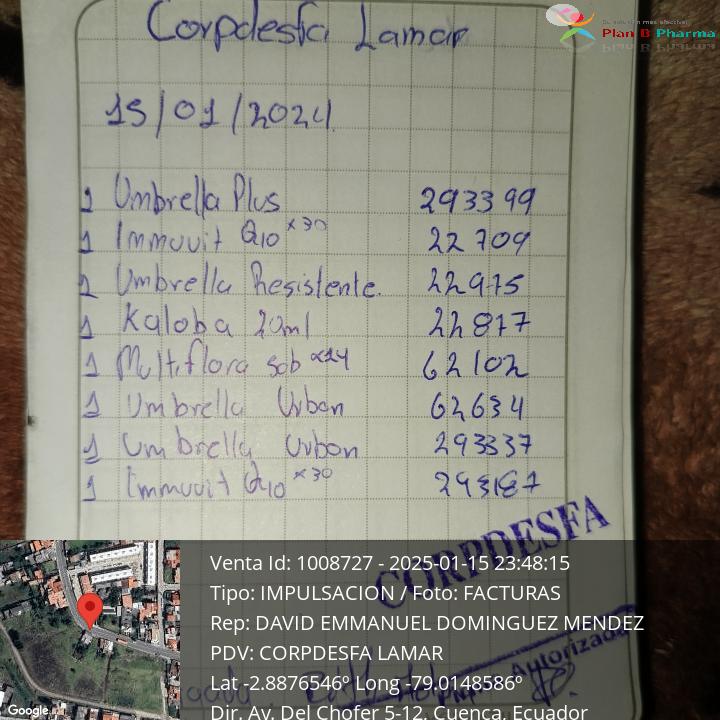 Corpdesfa Lamar
Plan B Pharma
15/01/2024
1 Umbrella Plus 293399
1 Immuvit Q10 x30 22709
1 Umbrella Resistente. 22975
1 Kaloba 20ml 22877
1 Multiflora sob x14 62102
1 Umbrella Urban 62634
1 Umbrella Urban 293337
1 Immuvit Q10 x30 293187
CORPDESFA
Autorizada
Venta Id: 1008727 - 2025-01-15 23:48:15
Tipo: IMPULSACION / Foto: FACTURAS
Rep: DAVID EMMANUEL DOMINGUEZ MENDEZ
PDV: CORPDESFA LAMAR
Lat -2.8876546º Long -79.0148586º
Dir. Av. Del Chofer 5-12, Cuenca, Ecuador
Google